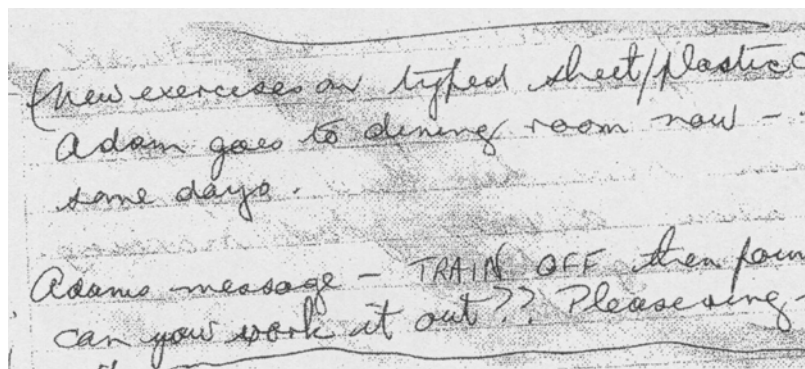 (New exercises on typed sheet/plastic
Adam goes to dining room now -
some days.
Adams message - TRAIN OFF then
can you work it out?? Please ring -